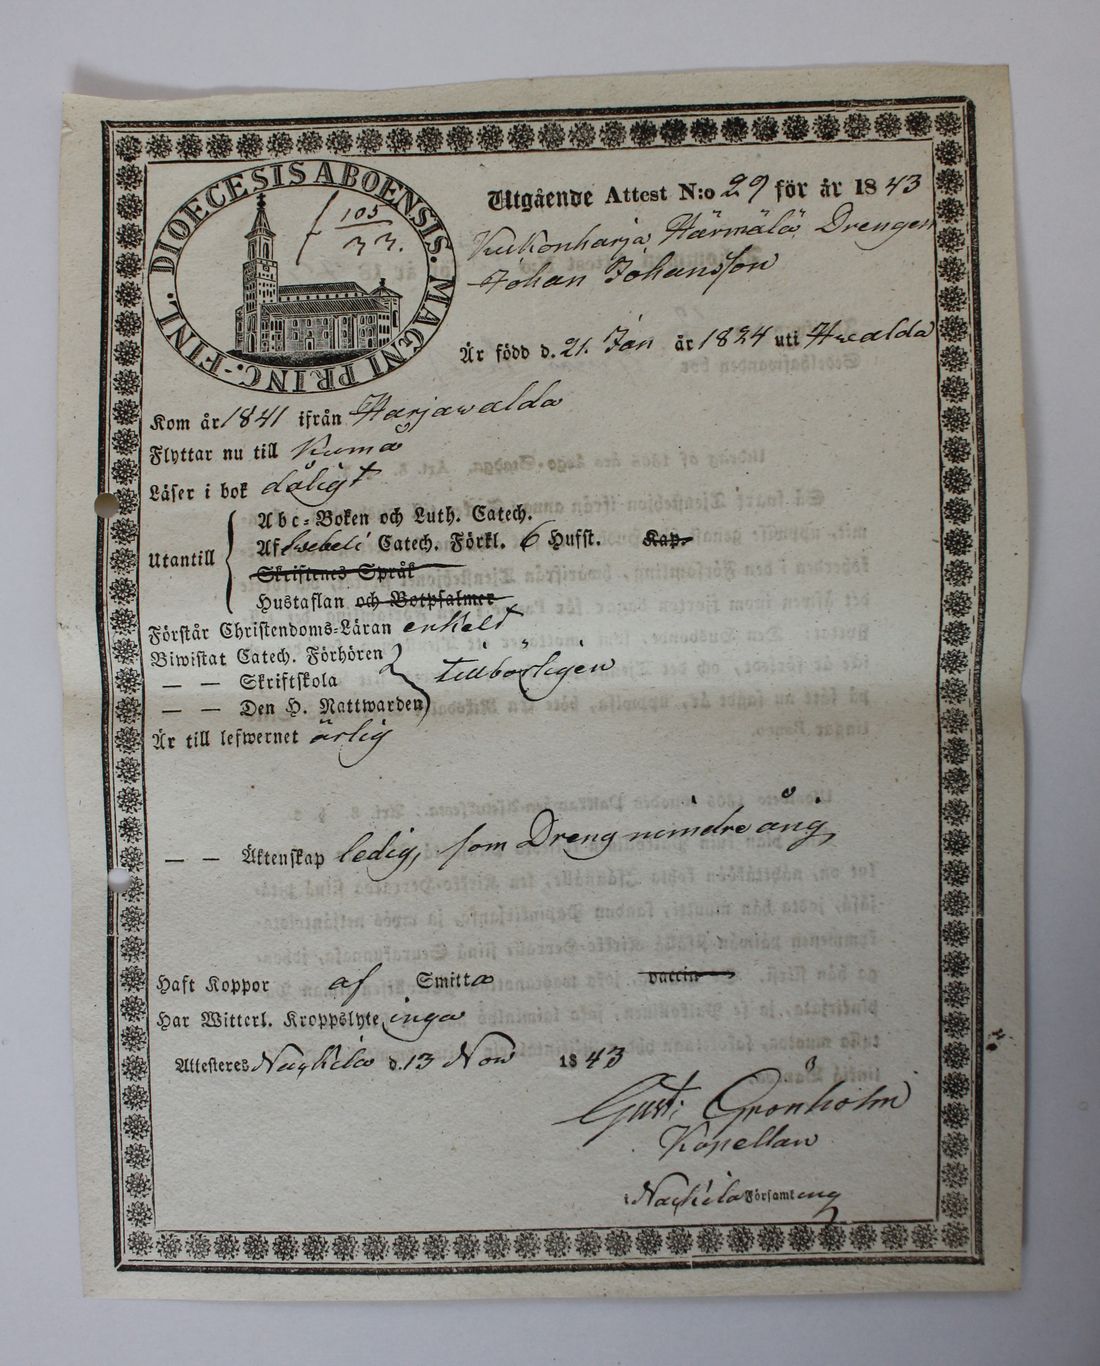 DIOECESIS ABOENSIS. MAGNI PRINC.-FINL.
105
33.
Utgående Attest N:o 29 för år 1843
Kukonharja Härmälä Drengen
Johan Johansson
Är född d. 21. Jan år 1824 uti Hvalda
Kom år 1841 ifrån Harjawalda
Flyttar nu till Kumo
Läser i bok dåligt
Utantill
Abc-Boken och Luth. Catech.
Af Swebeli Catech. Förkl. 6 Hufst. Kap.
Skriftenes Språk
Hustaflan och Botpsalmer
Förstår Christendoms-Läran enkelt
Biwistat Catech. Förhören
— — Skriftskola tillbörligen
— — Den H. Nattwarden
Är till lefwernet ärlig
— — Äktenskap ledig, som Dreng mindreång,
Haft Koppor af Smitta vaccin
Har Witterl. Kroppslyte inga
Attesteres Nackila d. 13 Nov 1843
Gust: Grönholm
Kapellan
i Nackila Församling